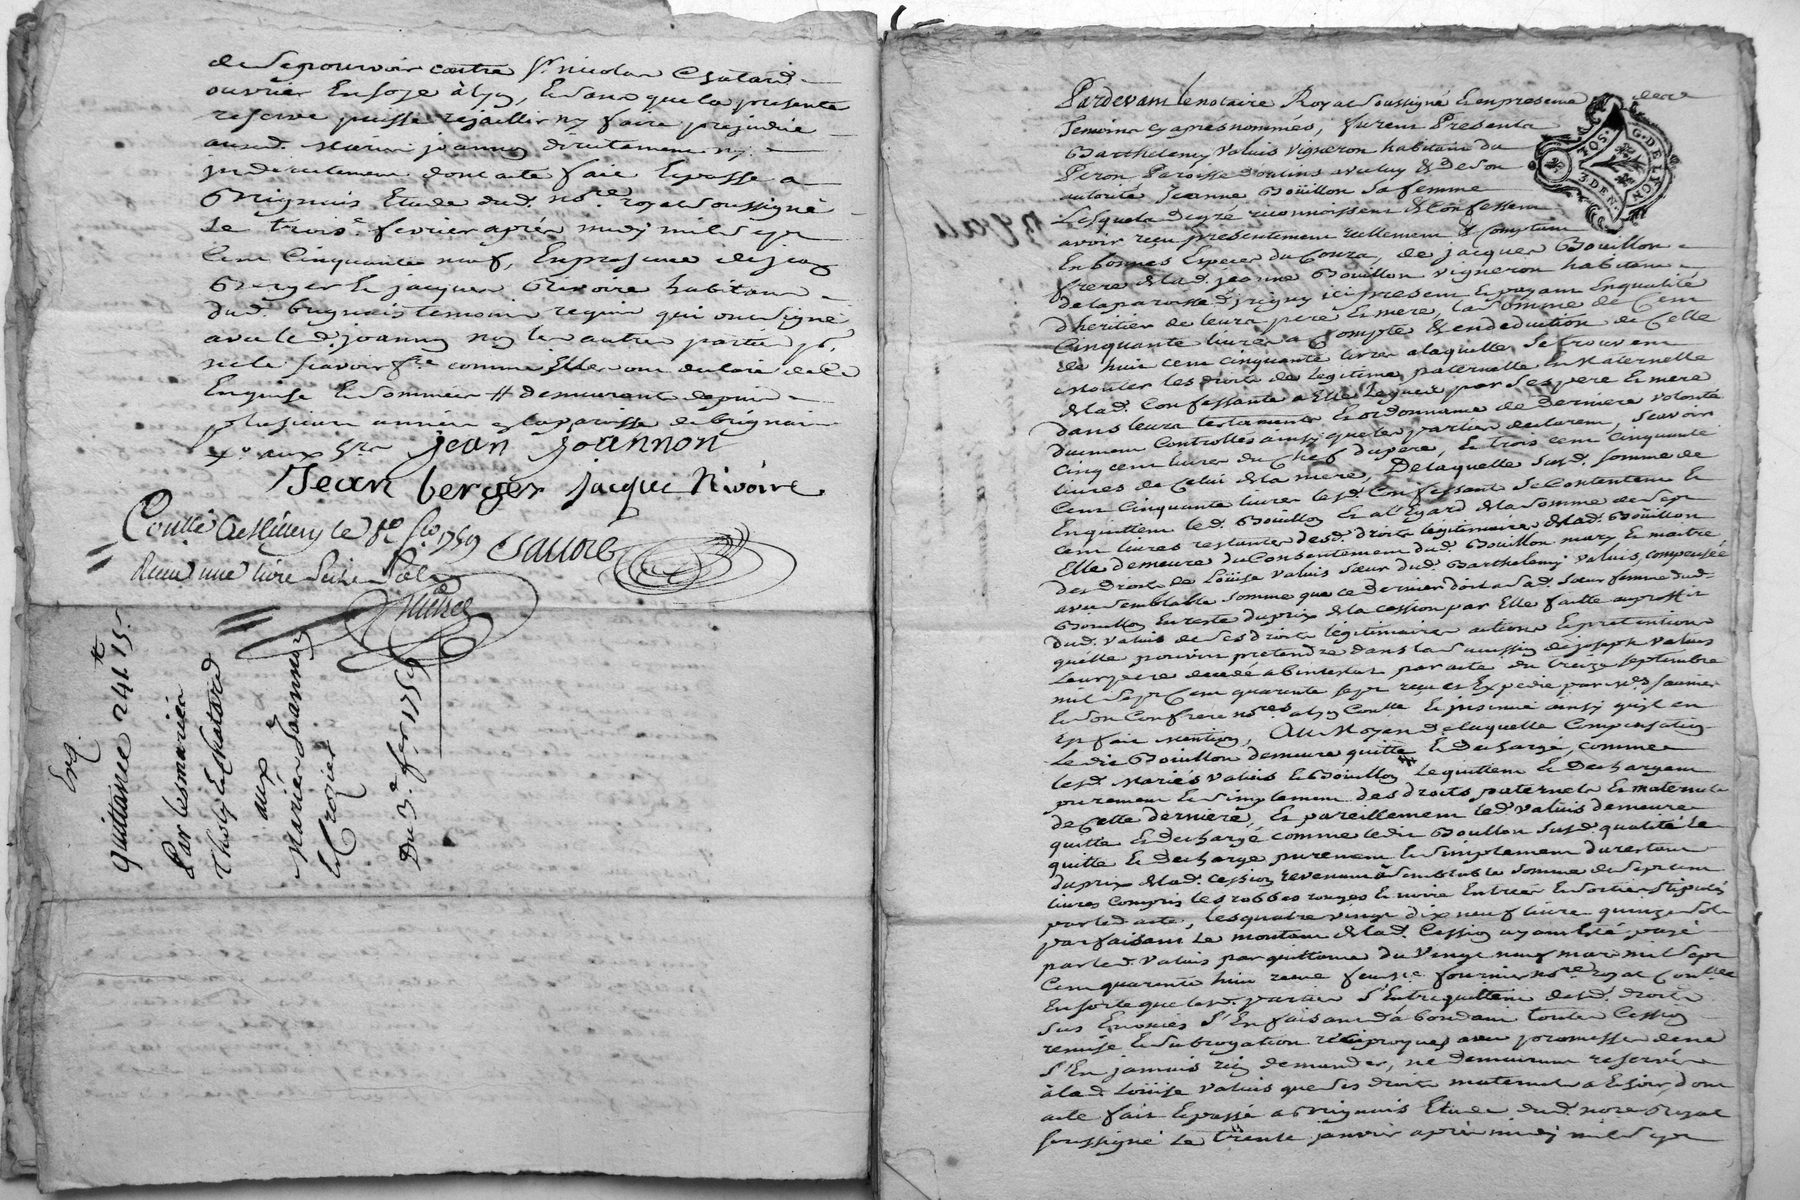 de se pourvoir contre Sr. nicolas Chatard
ouvrier En soye à lyon, Et sans que la presente
reserve puisse rejaillir ny faire prejudice
auxd. Mariés joannon directement ny
indirectement dont acte fait Et passé a
Brignais Etude dud. nore. royal soussigné
Le trois.e fevrier après midy mil sept
Cent Cinquante neuf, En presence de jean
Berger Et jacques Rivoire habitans
dud. brignais temoins requis qui ont signé
avec led. joannon non les autres parties pr.
ne le scavoir fe. comme Elles ont declaré de ce
Enquises Et sommées # demeurant depuis
plusieurs années en la paroisse de brignais
jean joannon
Jean berger jacque Rivoire
Contlé a le 8e fév 1759
Reçu une livre seize sols
Sauore
Exq.
quittance 241# 15s.
Par les mariés
Tholy Et Chatard
aux
Mariés Joannon
Et Crozier
Du 3e. fer. 1759
G. DE LYON
3 DEN.
Pardevant le notaire Royal soussigné Et en presence des
Temoins cy apres nommés, furent Presents
Barthelemy Valuis vigneron habitant du
Peron Paroisse d'oulins avec luy & de son
autorité Jeanne Boüillon sa femme
Lesquels de gré reconnoissent & Confessent
avoir reçu presentement reellement & comptant
En bonnes Especes du Cours, de jacques Boüillon
frere de lad. jeanne Boüillon vigneron habitant
de la paroisse d'irigny ici present Et payant En qualité
d'heritier de leurs pere Et mere, la somme de Cent
Cinquante livres a Compte & en deduction de Celle
de huit cent cinquante livres a laquelle se trouvent
monter les droits de legitime paternelle Et Maternelle
de lad. Confessante a Elle Legués par ses pere Et mere
dans leurs testaments Et ordonnance de derniere volonté
duement Controllés ainsy que les parties declarent, scavoir
Cinq cent livres du Chef du pere, Et trois cent cinquante
livres de Celui de la mere, De laquelle susd. somme de
Cent Cinquante livres lesd. Confessants se Contentent Et
En quittent led. Boüillon Et a l'Egard de la somme de sept
cent livres restante desd. droits legitimaires de lad. Boüillon
Elle demeure du Consentement dud. Boüillon mary Et maitre
des droits de Loüise Valuis sœur dud. Barthelemy Valuis, compensée
avec semblable somme que ce dernier doit a sad. sœur femme dud.
Boüillon En reste du prix de la cession par Elle faitte au proffit
dud. Valuis de ses droits legitimaires actions Et pretentions
quelle pouvoit pretendre dans la succession de joseph Valuis
Leur pere decedé abintestat par acte du treize septembre
mil sept Cent quarente sept reçu et Expedié par Me. Saunier
Et son Confrere nores. a lyon Contlé Et insinué ainsy quil en
Est fait Mention, Au Moyen de laquelle Compensation
Ledit Boüillon demeure quitte # Et dechargé, comme
lesd. Mariés Valuis Et Boüillon Le quittent Et dechargent
purement Et simplement des droits paternels Et maternels
de Cette derniere, Et pareillement led. Valuis demeure
quitte Et dechargé comme ledit Boüillon susd. qualité Le
quitte Et decharge purement Et simplement du restant
du prix de lad. cession revenant a semblable somme de sept cent
livres compris les robbes rouges Et noire Entrées En sortie stipulés
par led. acte, les quatre vingt dix neuf livres quinze sols
parfaisant le montant de lad. Cession ayant Eté payé
par led. Valuis par quittance du vingt neuf mars mil sept
Cent quarente huit reçue par Me. fournier nore. royal Contllée
En sorte que lesd. parties s'Entrequittent desd. droits
sus Enoncés s'En faisant d'abondant toutes Cession
remise Et subrogation reciproques avec promesse de ne
s'En jamais rien demander, ne demeurant reservés
à lad. Loüise Valuis que ses droits maternels a Echoir, dont
acte fait Et passé a Brignais Etude dud. nore Royal
soussigné Le trente janvier après midy mil sept